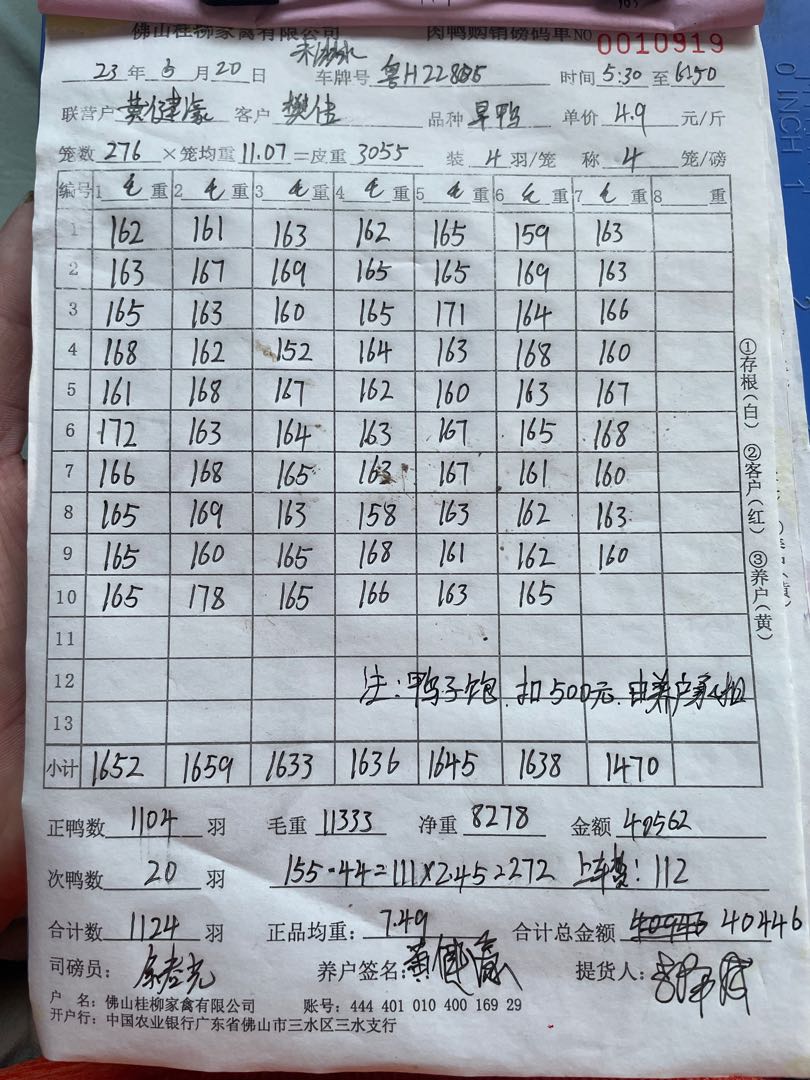 佛山桂柳家禽有限公司 肉鸭购销磅码单NO 0010919
23年6月20日 车牌号 粤H22885 时间 5:30 至 6:50
联营户 黄健豪 客户 樊佳 品种 旱鸭 单价 4.9 元/斤
笼数 276 ×笼均重 11.07 =皮重 3055 装 4 羽/笼 称 4 笼/磅
编号 1 毛 重 2 毛 重 3 毛 重 4 毛 重 5 毛 重 6 毛 重 7 毛 重 8 重
1 162 161 163 162 165 159 163
2 163 167 169 165 165 169 163
3 165 163 160 165 171 164 166
4 168 162 152 164 163 168 160
5 161 168 167 162 160 163 167
6 172 163 164 163 167 165 168
7 166 168 165 163 167 161 160
8 165 169 163 158 163 162 163
9 165 160 165 168 161 162 160
10 165 178 165 166 163 165
11
12 注:鸭子饱.扣500元.由养户承担
13
小计 1652 1659 1633 1636 1645 1638 1470
①存根(白) ②客户(红) ③养户(黄)
正鸭数 1104 羽 毛重 11333 净重 8278 金额 40562
次鸭数 20 羽 155-44=111×2.45=272 上车费:112
合计数 1124 羽 正品均重: 7.49 合计总金额 40946 40446
司磅员: 养户签名: 黄健豪 提货人:
户 名:佛山桂柳家禽有限公司 账号:444 401 010 400 169 29
开户行:中国农业银行广东省佛山市三水区三水支行